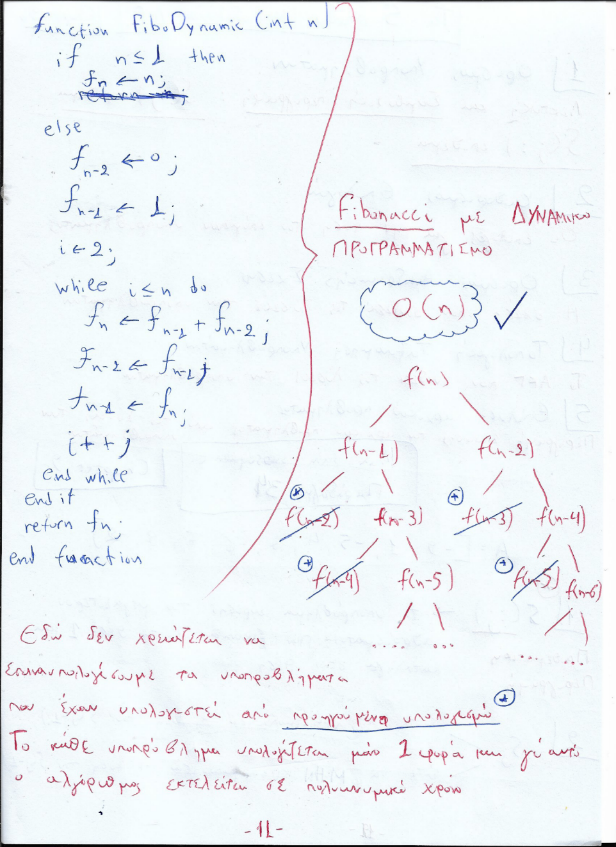 function FiboDynamic (int n)
if n ≤ 1 then
fn ← n;
return n;
else
fn-2 ← 0;
fn-1 ← 1;
i ← 2;
while i ≤ n do
fn ← fn-1 + fn-2;
fn-2 ← fn-1;
fn-1 ← fn;
i++;
end while
end if
return fn;
end function
Fibonacci με ΔΥΝΑΜΙΚΟ
ΠΡΟΓΡΑΜΜΑΤΙΣΜΟ
O(n) ✓
f(n)
f(n-1) f(n-2)
f(n-2) f(n-3) f(n-3) f(n-4)
f(n-4) f(n-5) f(n-5) f(n-6)
..... ... ..... ...
Εδώ δεν χρειάζεται να
επαναυπολογίσουμε τα υποπροβλήματα
που έχουν υπολογιστεί από προηγούμενο υπολογισμό *
Το κάθε υποπρόβλημα υπολογίζεται μόνο 1 φορά και γι' αυτό
ο αλγόριθμος εκτελείται σε πολυωνυμικό χρόνο
-11-